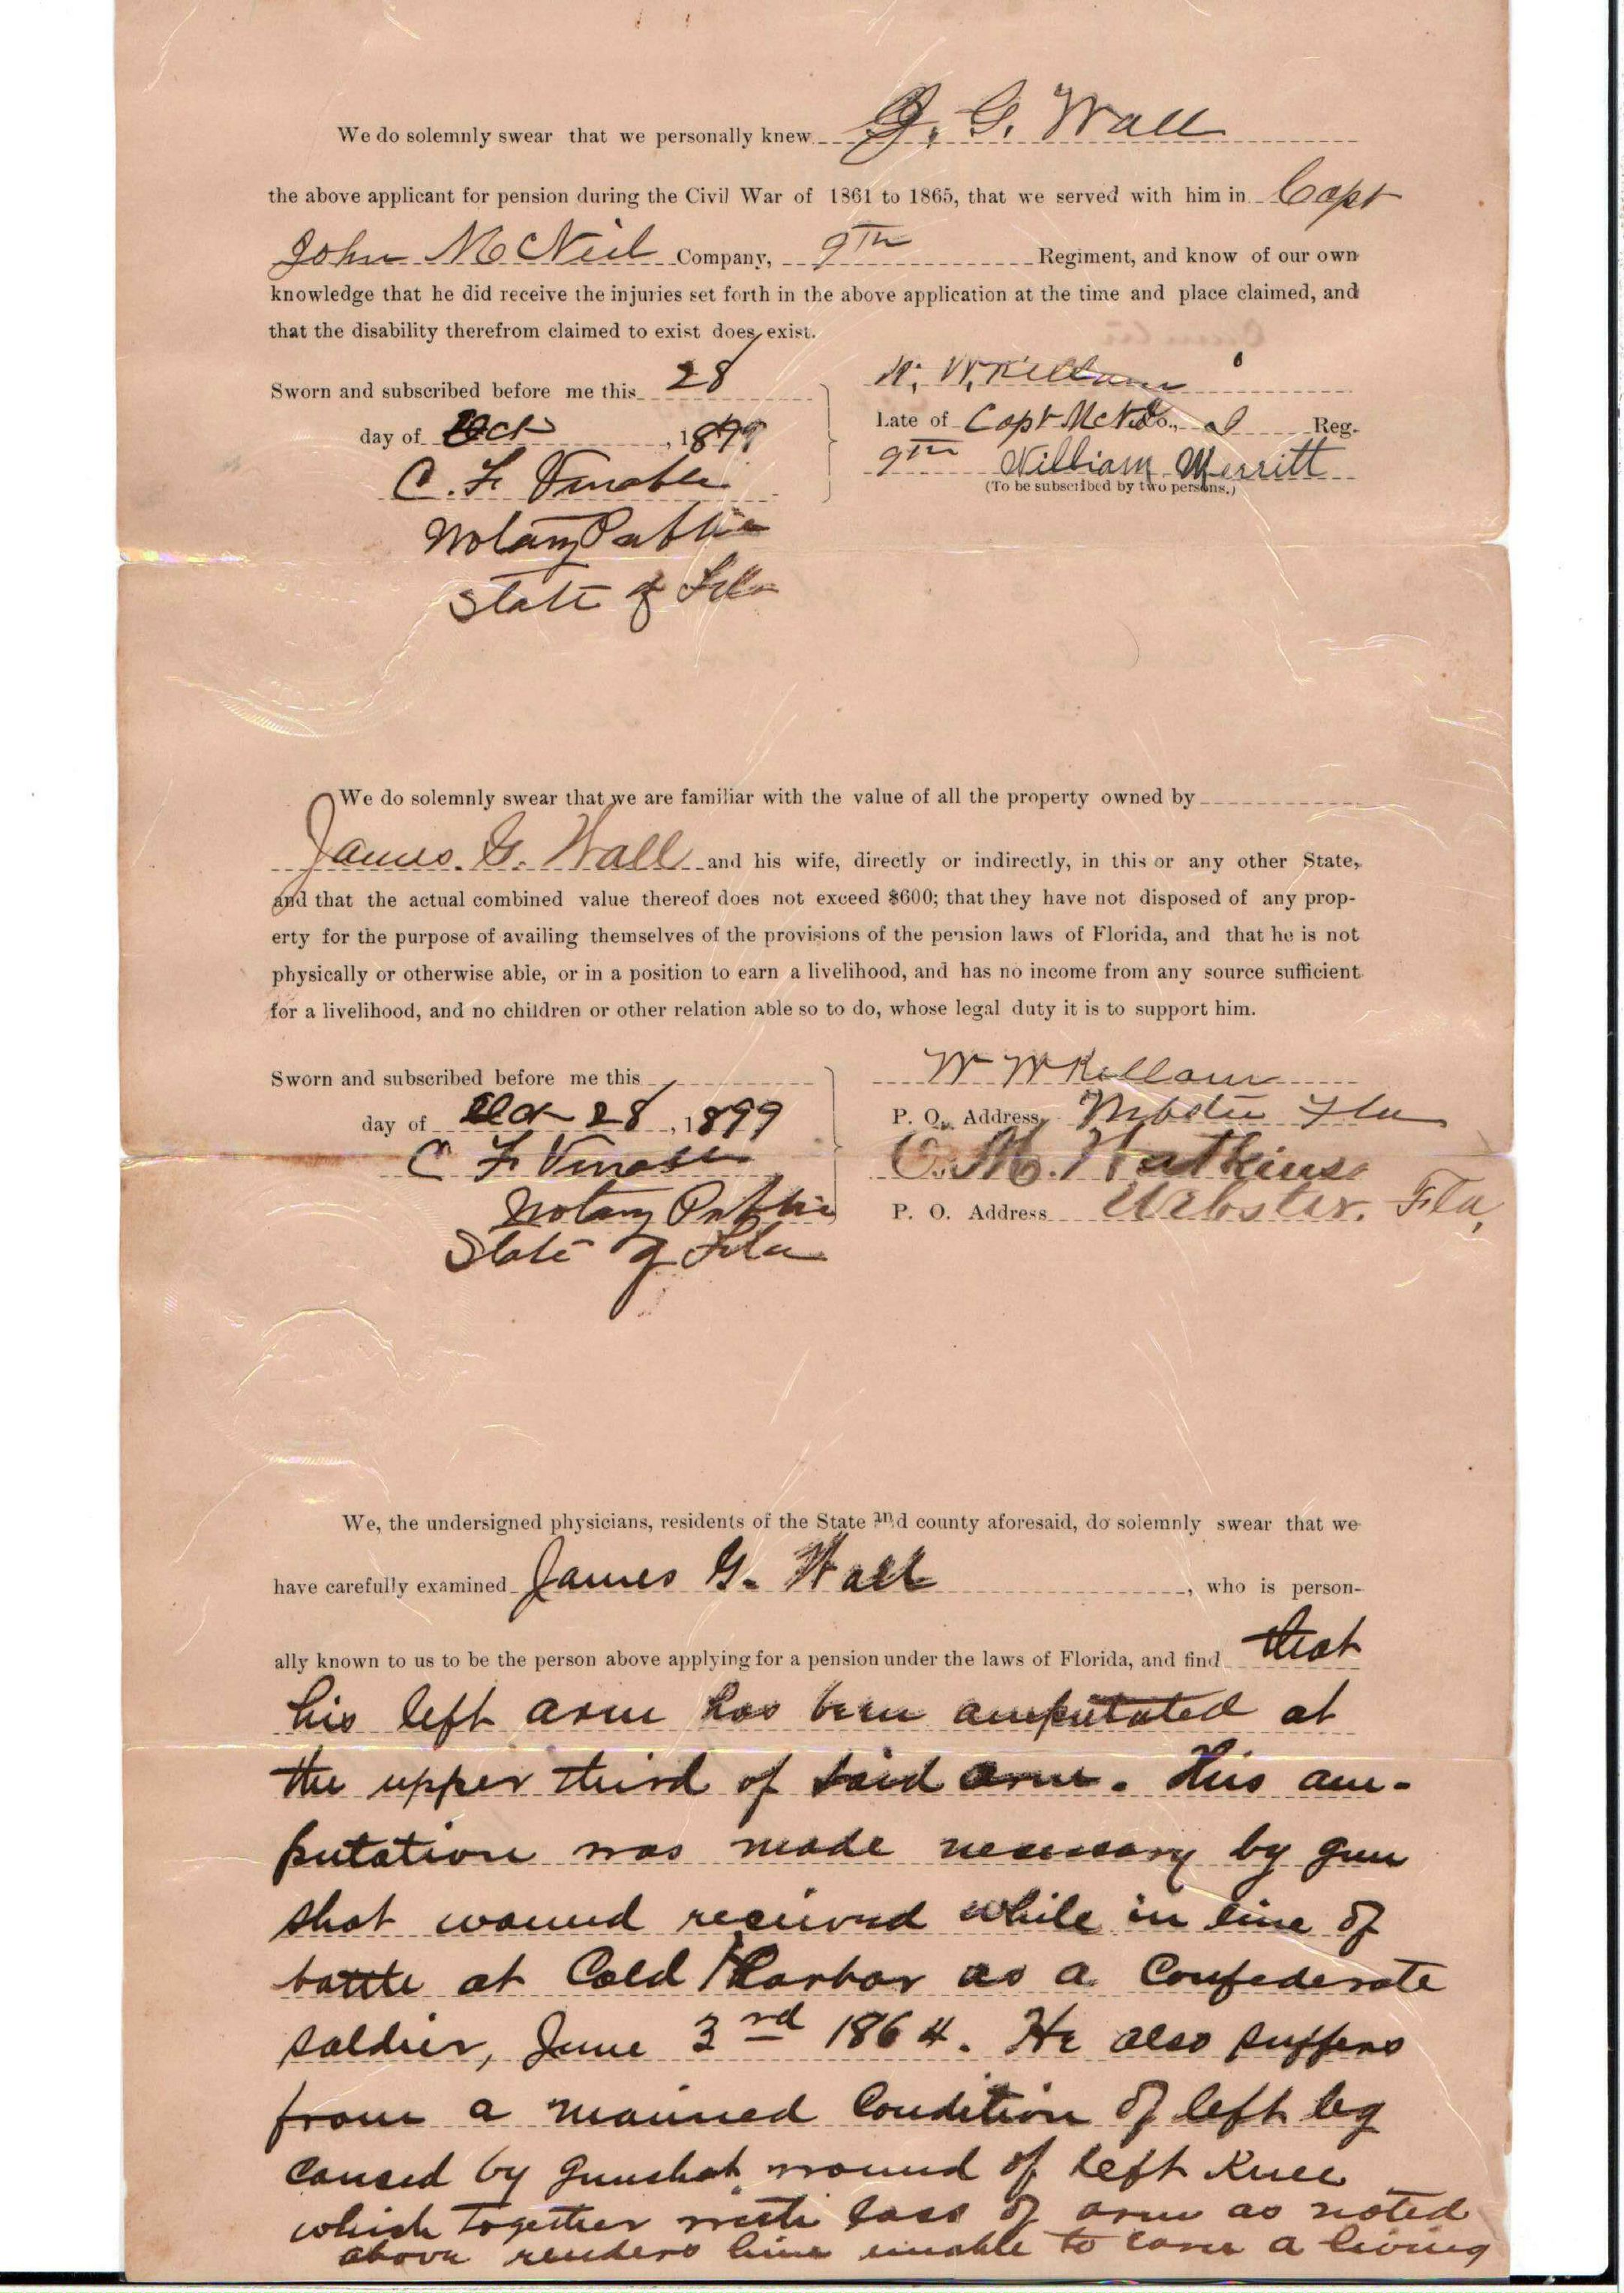 We do solemnly swear that we personally knew J. G. Wall
the above applicant for pension during the Civil War of 1861 to 1865, that we served with him in Capt
John McNeil Company, 9th Regiment, and know of our own
knowledge that he did receive the injuries set forth in the above application at the time and place claimed, and
that the disability therefrom claimed to exist does exist.
Sworn and subscribed before me this 28
W. W. Kellam
day of Oct, 1899
Late of Capt McN Co., I Reg.
C. F. Venable
9th William Merritt
(To be subscribed by two persons.)
Notary Public
State of Fla
We do solemnly swear that we are familiar with the value of all the property owned by
James. G. Wall and his wife, directly or indirectly, in this or any other State,
and that the actual combined value thereof does not exceed $600; that they have not disposed of any prop-
erty for the purpose of availing themselves of the provisions of the pension laws of Florida, and that he is not
physically or otherwise able, or in a position to earn a livelihood, and has no income from any source sufficient
for a livelihood, and no children or other relation able so to do, whose legal duty it is to support him.
Sworn and subscribed before me this
W W Kellam
day of Oct 28, 1899
P. O. Address Fla
C F Venable
C. M. Watkins
Notary Public
P. O. Address Webster. Fla,
State of Fla
We, the undersigned physicians, residents of the State and county aforesaid, do solemnly swear that we
have carefully examined James G. Wall, who is person-
ally known to us to be the person above applying for a pension under the laws of Florida, and find that
his left arm has been amputated at
the upper third of said arm. This am-
putation was made necessary by gun
shot wound received while in line of
battle at Cold Harbor as a Confederate
soldier, June 3rd 1864. He also suffers
from a maimed condition of left leg
caused by gunshot wound of left knee
which together with loss of arm as noted
above renders him unable to earn a living